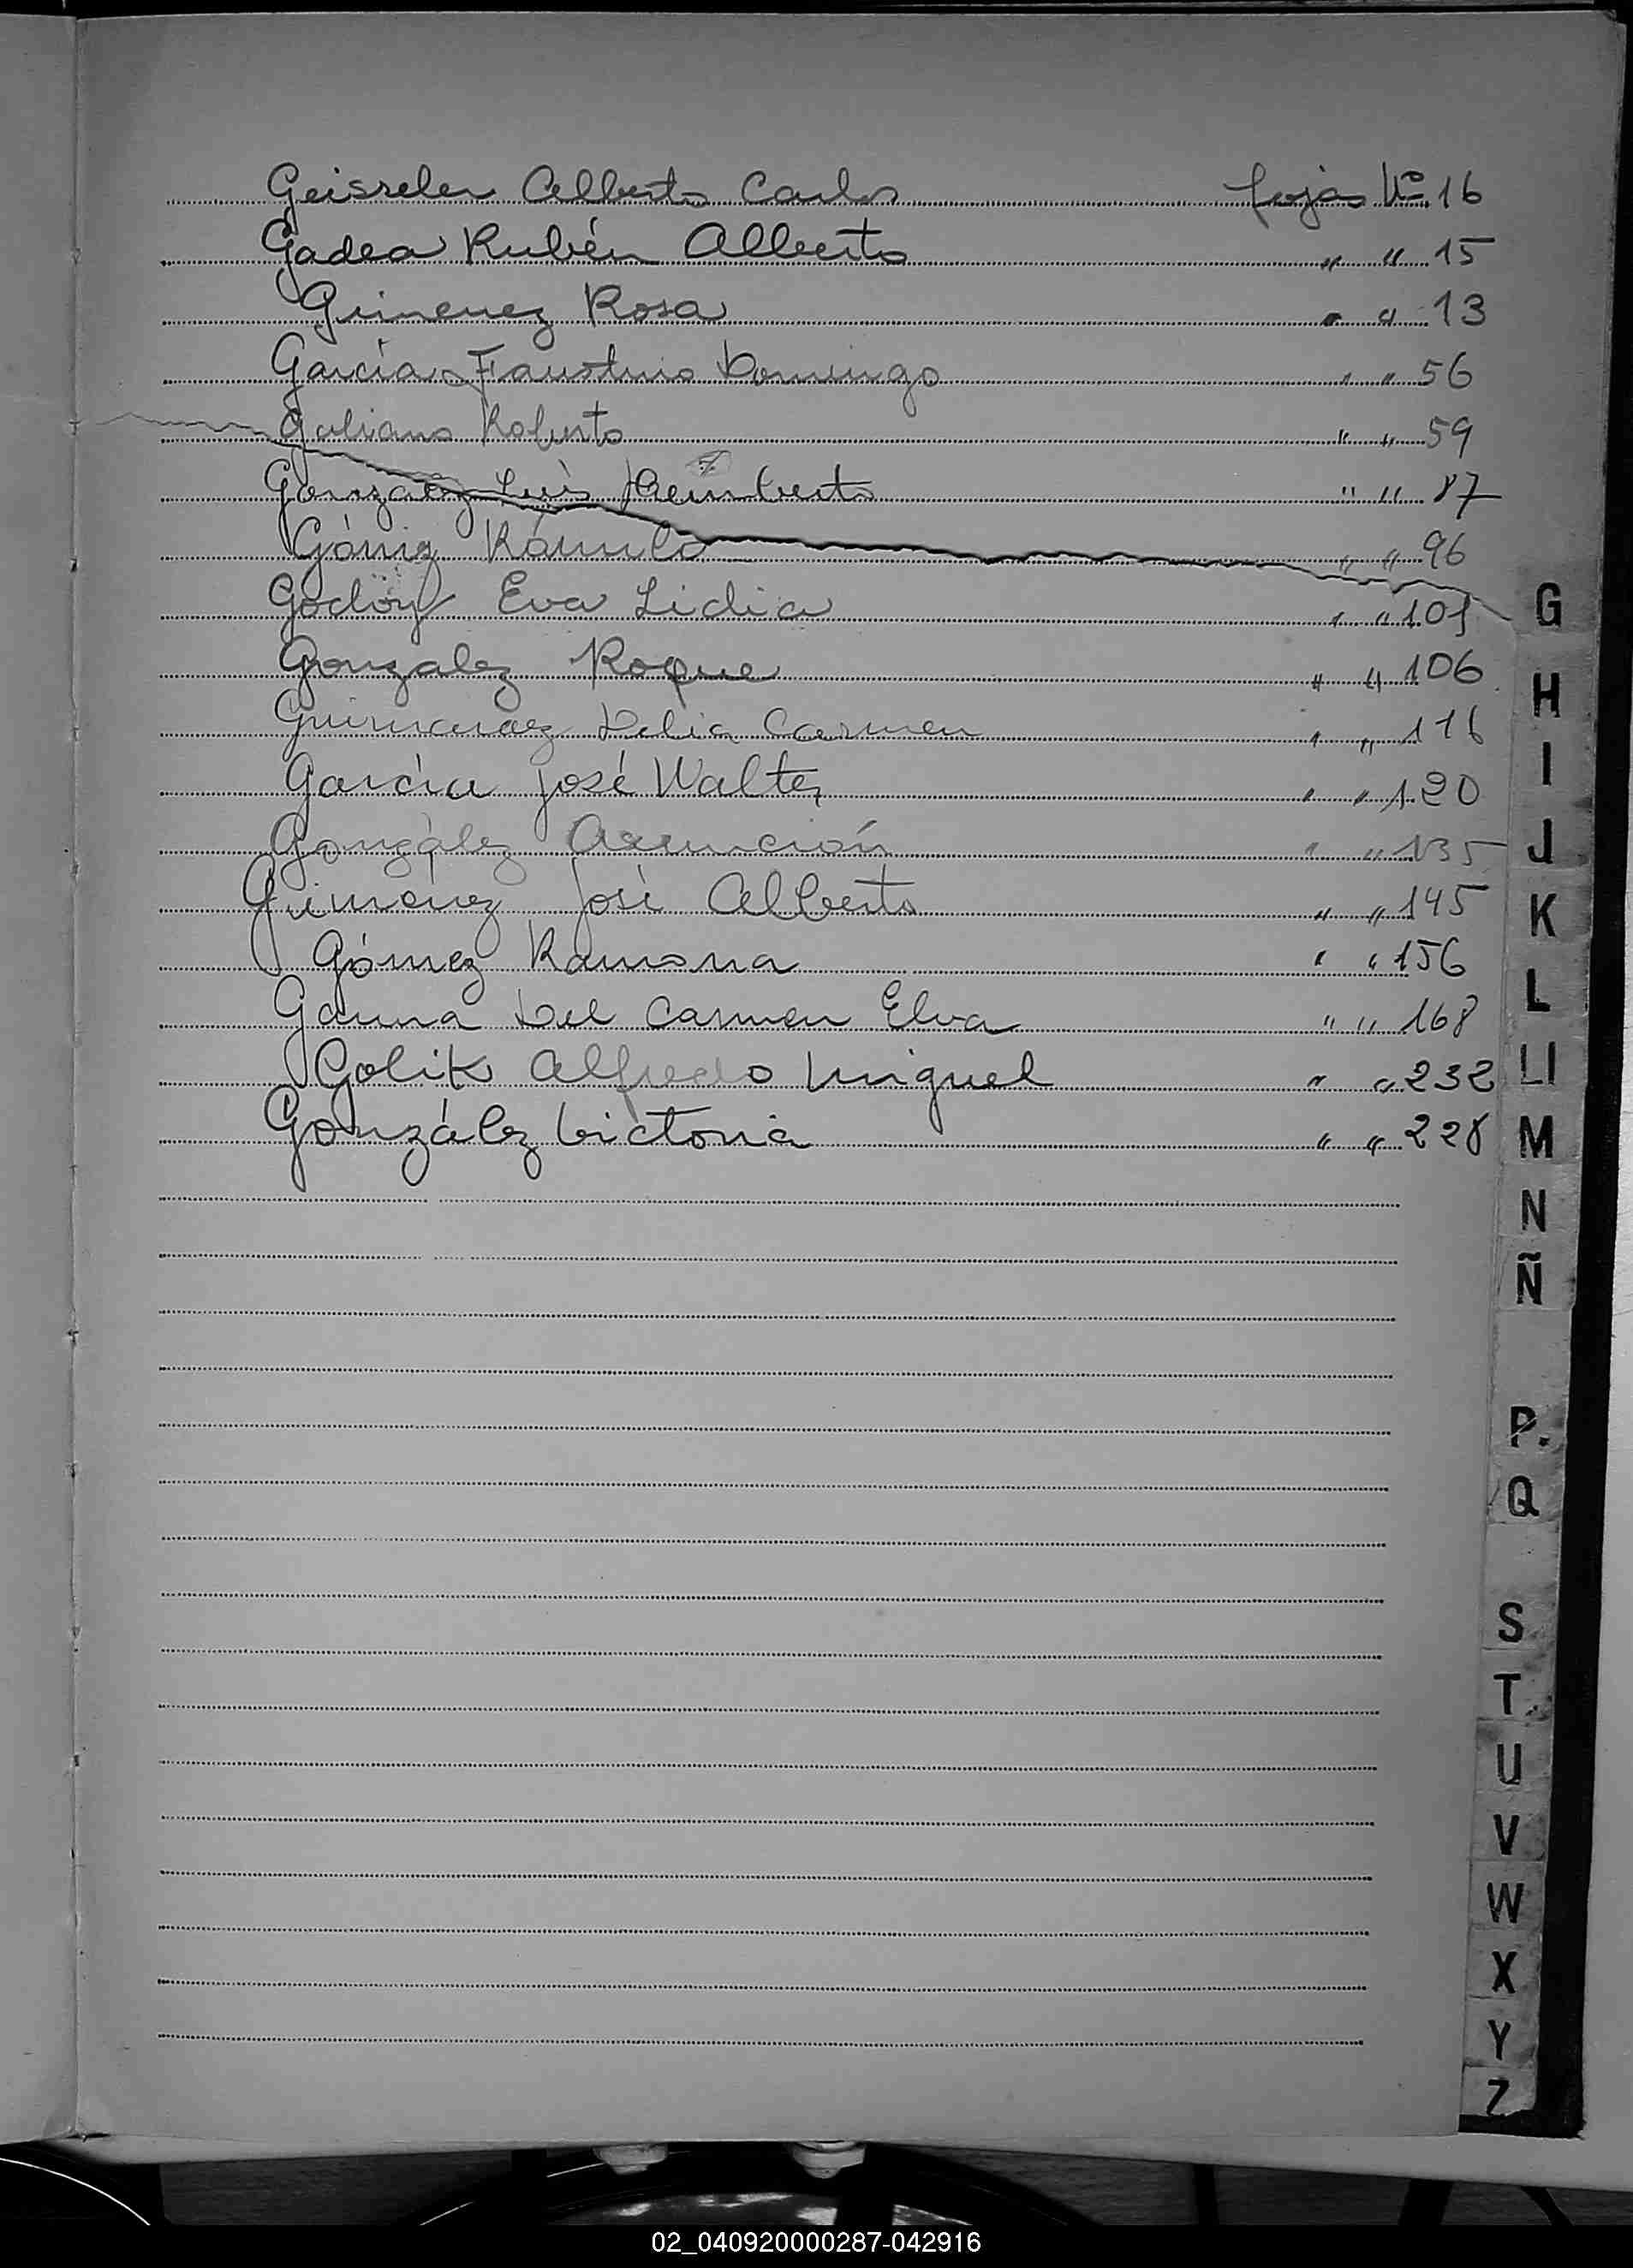 Geisseler Alberto Carlos fojas Nº 16
Gadea Rubén Alberto " " 15
Gimenez Rosa " " 13
García Faustino Domingo " " 56
Galiano Roberto " " 59
Gonzalez Luis Humberto " " 87
Góniz Rómulo " " 96
Godoy Eva Lidia " " 101
Gonzalez Roque " " 106
Guimaraez Delia Carmen " " 116
García José Walter " " 120
González Asunción " " 135
Gimenez José Alberto " " 145
Gómez Ramona " " 156
Gauna Del Carmen Elva " " 168
Golik Alfredo Miguel " " 232
González Victoria " " 228
G
H
I
J
K
L
Ll
M
N
Ñ
P.
Q
S
T
U
V
W
X
Y
Z
02_040920000287-042916